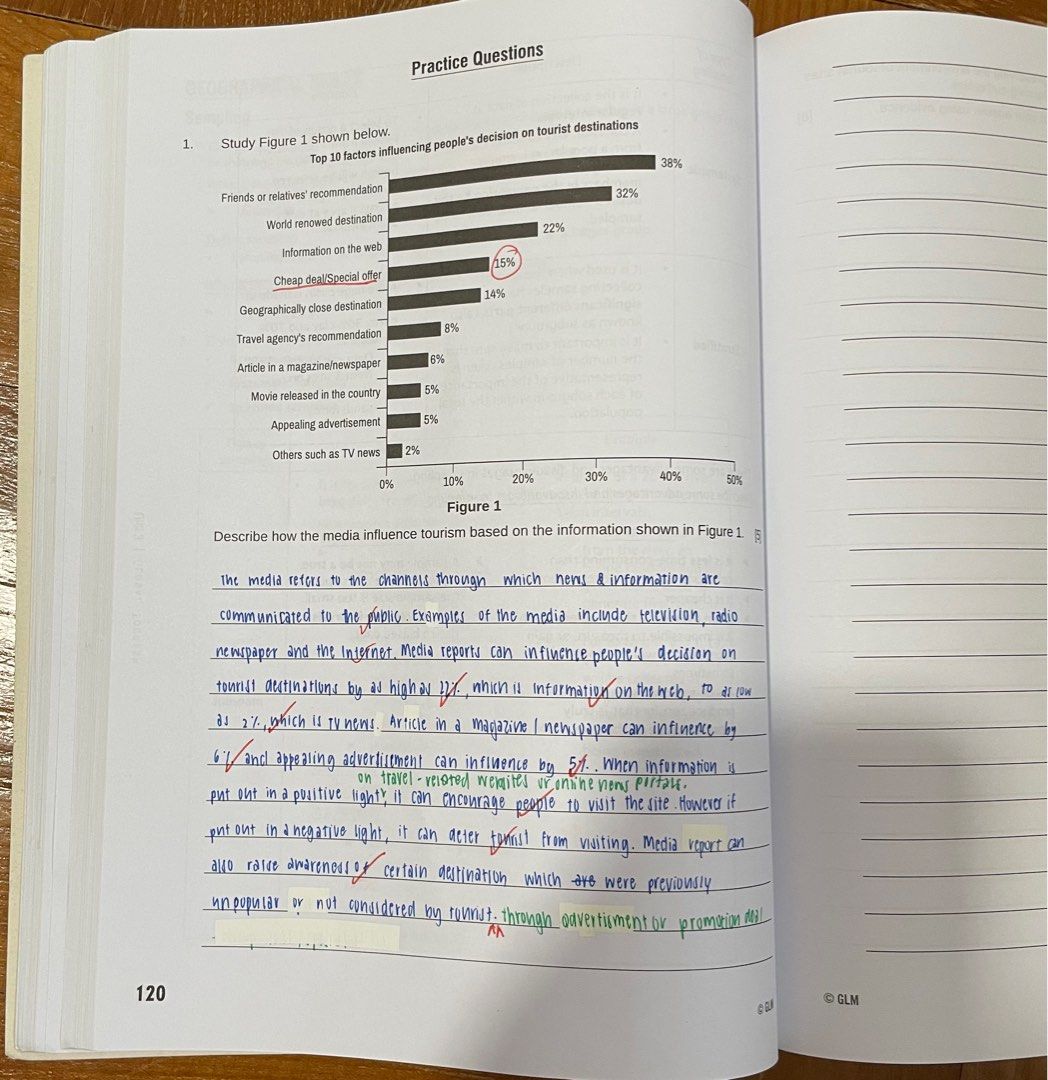 Practice Questions
1. Study Figure 1 shown below.
Top 10 factors influencing people's decision on tourist destinations
Friends or relatives' recommendation 38%
World renowed destination 32%
Information on the web 22%
Cheap deal/Special offer 15%
Geographically close destination 14%
Travel agency's recommendation 8%
Article in a magazine/newspaper 6%
Movie released in the country 5%
Appealing advertisement 5%
Others such as TV news 2%
0% 10% 20% 30% 40% 50%
Figure 1
Describe how the media influence tourism based on the information shown in Figure 1. [5]
The media refers to the channels through which news & information are
communicated to the public. Examples of the media include television, radio
newspaper and the Internet. Media reports can influence people's decision on
tourist destinations by as high as 22%, which is information on the web, to as low
as 2%, which is TV news. Article in a magazine / newspaper can influence by
6% and appealing advertisement can influence by 5%. When information is
on travel-related websites or online news portals.
put out in a positive light, it can encourage people to visit the site. However if
put out in a negative light, it can deter tourist from visiting. Media report can
also raise awareness of certain destination which are were previously
unpopular or not considered by tourist. through advertisment or promotion deal
120
© GLM
© GLM